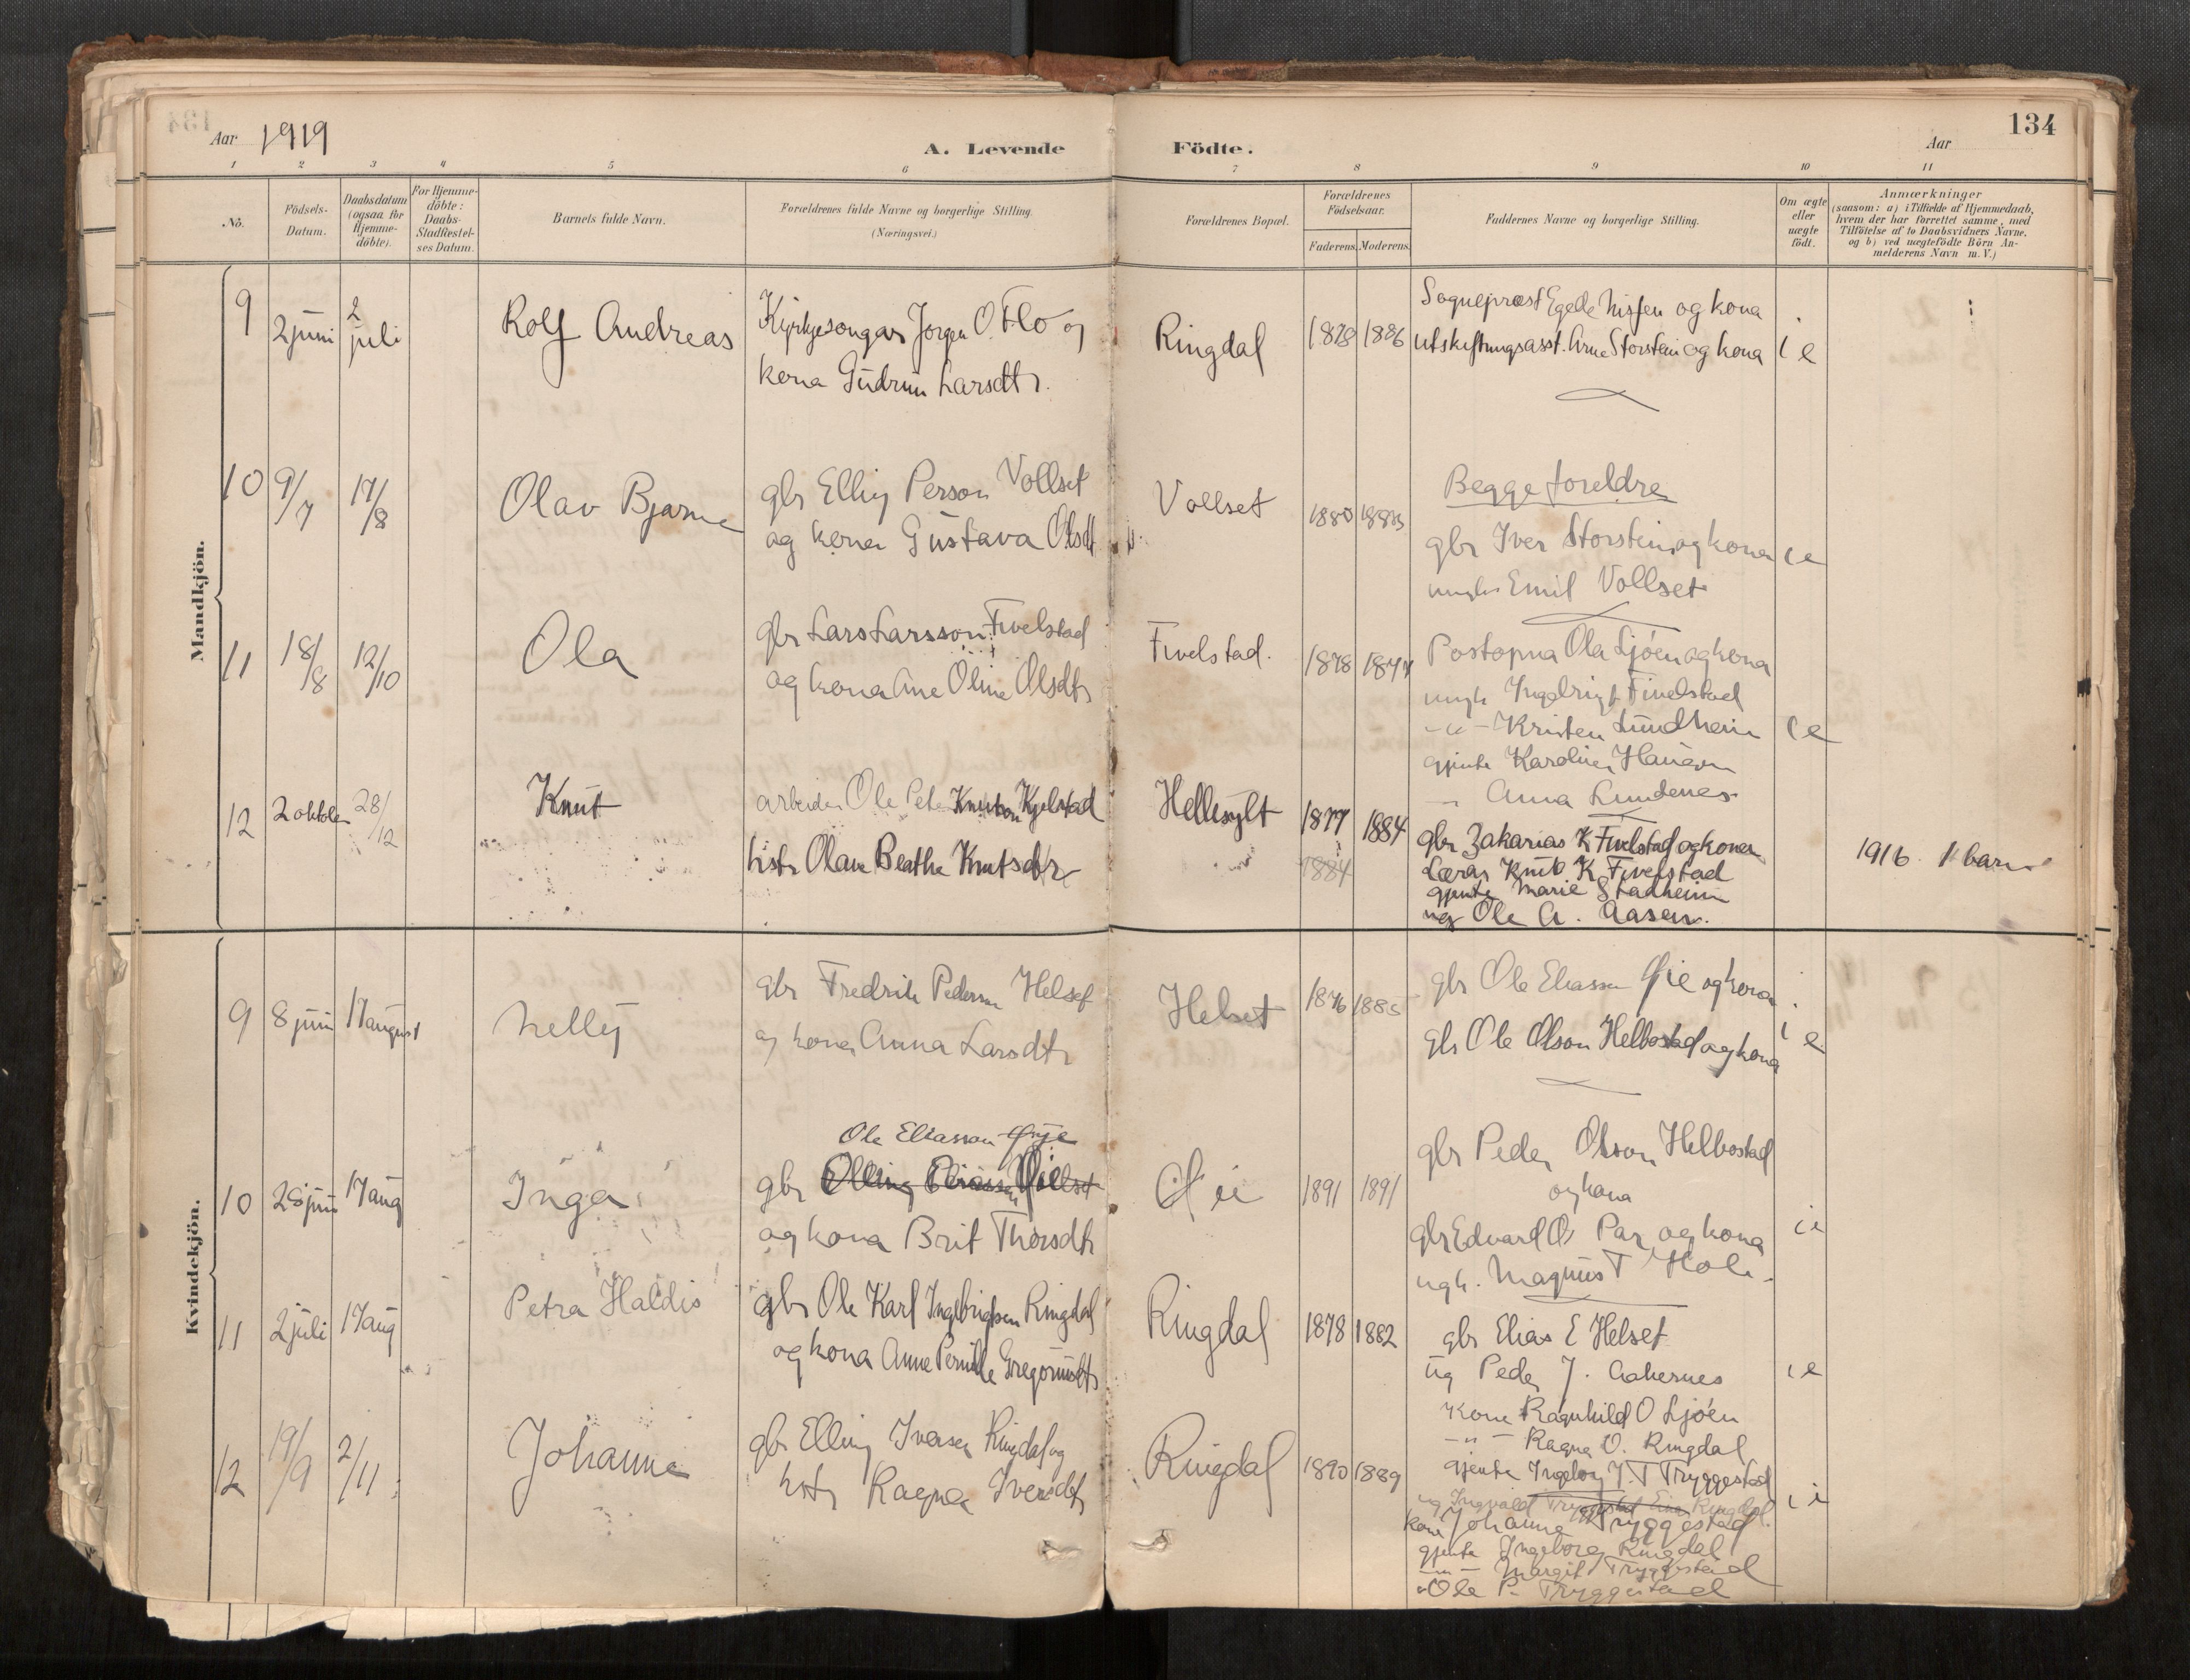 134
Aar 1919
A. Levende Födte.
Aar
1 2 3 4 5 6 7 8 9 10 11
No.
Födsels-
Datum.
Daabsdatum
(ogsaa for
Hjemme-
döbte).
For Hjemme-
döbte:
Daabs-
Stadfæstel-
ses Datum.
Barnets fulde Navn.
Forældrenes fulde Navne og borgerlige Stilling.
(Næringsvei.)
Forældrenes Bopæl.
Forældrenes
Födselsaar.
Faderens. Moderens.
Faddernes Navne og borgerlige Stilling.
Om ægte
eller
uægte
födt.
Anmærkninger
(saasom: a) i Tilfælde af Hjemmedaab,
hvem der har forrettet samme, med
Tilföielse af to Daabsvidners Navne,
og b) ved uægtefödte Börn An-
melderens Navn m. V.)
Mandkjön.
9 2 juni 2 juli Rolf Andreas
Kyrkjesongar Jorgen O. Flo og
kona Gudrun Larsdtr.
Ringdal 1878 1886
Sogneprest Egede Nissen og kona
Utskiftningsasst. Arne Storstein og kona
i e
10 9/7 17/8 Olav Bjarne
gbr Elling Person Vollset
og kona Gustava Olsdt
Vollset 1880 1883
Begge foreldre
gbr Iver Storstein og kona
ungk Emil Vollset
i e
11 18/8 12/10 Ola
gbr Lars Larsson Fivelstad
og kona Ane Oline Olsdtr
Fivelstad. 1878
Postopna Ola Ljøen og kona
ungk Ingebrigt Fivelstad
-"- Kristen Lundheim
gjenta Karoline
" Anna Lundenes
i e
12 2 oktober 28/12 Knut
arbeider Ole Peter Knutson Kjelstad
hstr Olave Beathe Knutsdtr
Hellesylt 1877 1884
1884
gbr Zakarias K Fivelstad og kona
Lærar Knut K Fivelstad
gjenta Marie Stadheim
ug Ole A. Aasen.
1916. 1 barn
Kvindekjön.
9 8 juni 17 august Nelly
gbr Fredrik Pederson Helset
og kona Anna Larsdtr
Helset 1876 1885
gbr Ole Eliassen Øie og kona
gbr Ole Olson Hellbostad og kona
i e
10 28 juni 17 aug Inga
Ole Eliasson Øye
gbr Elling Eliassen
og kona Brit Thorsdtr
Øie 1891 1891
gbr Peder Olson Helbostad
og kona
gbr Edvard O. Par og kona
ugk. Magnus T Hole
11 2 juli 17 aug Petra Haldis
gbr Ole Karl Ingebrigtsen Ringdal
og kona Anne Pernille Gregoriusdtr
Ringdal 1878 1882
gbr Elias E Helset
ug Peder J. Aakernes
i e
12 19/9 2/11 Johanna
gbr Elling Iverson Ringdal og
hstr Ragna Iversdtr
Ringdal 1890 1889
Kona Ragnhild O Ljøen
-"- Ragna O. Ringdal
gjenta Ingeborg J. T Tryggestad
ug Ingvald Tryggestad Einar Ringdal.
kona Johanna Tryggestad
gjenta Ingeborg Ringdal
-"- Margit Tryggestad
Ole P. Tryggestad